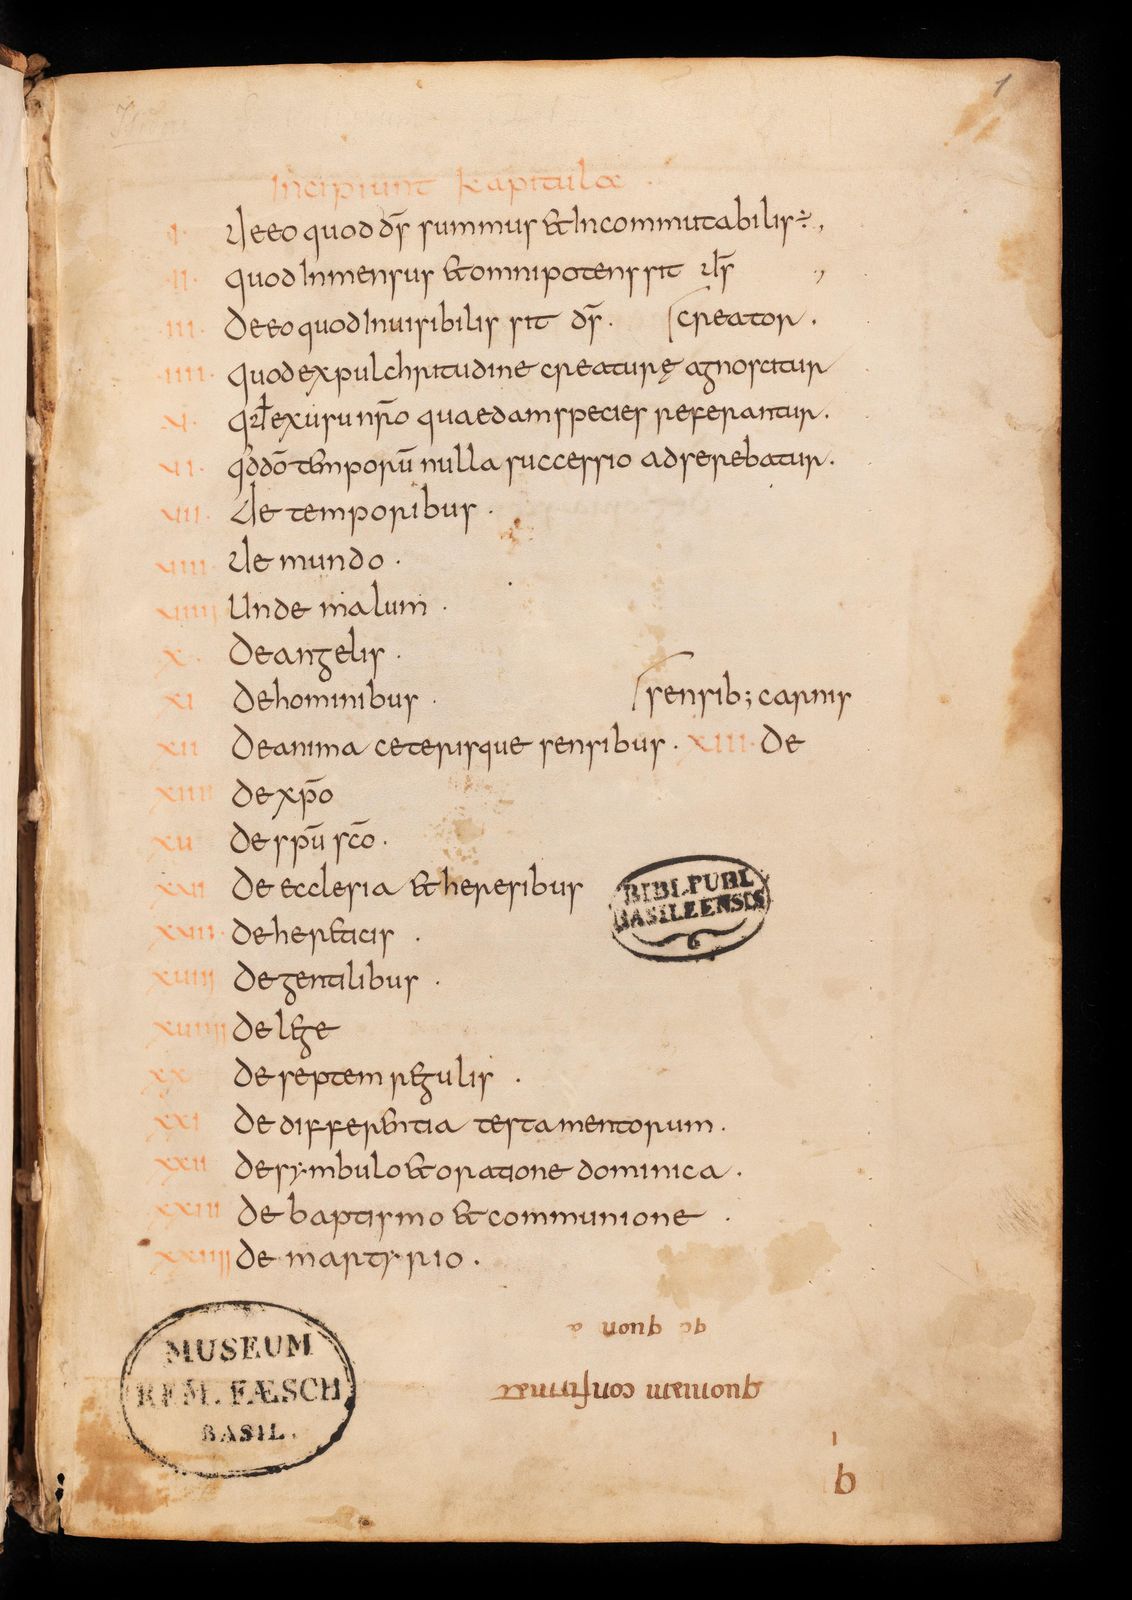 1
Incipiunt kapitula .
I. De eo quod ds̄ summus & Incommutabilis
II. quod Inmensus & omnipotens sit ds̄
III. De eo quod Inuisibilis sit ds̄. creator.
IIII. quod ex pulchritudine creaturę agnoscitur
V. qđ ex usu nr̄o quaedam species referantur.
VI. qđ dō temporū nulla successio adscrebatur.
VII. De temporibus .
VIII. De mundo .
VIIII Unde malum .
X. De angelis .
XI De hominibus . sensib; carnis
XII De anima ceterisque sensibus . XIII. De
XIIII De xp̄o
XV De spū sc̄o .
XVI De ecclesia & heresibus
XVII. De her&icis .
XVIII De gentilibus .
XVIIII De lege
XX De septem regulis .
XXI De differentia testamentorum .
XXII De symbulo & oratione dominica .
XXIII De baptismo & communione .
XXIIII De martyrio .
BIBL. PUBL
BASILEENSIS
MUSEUM
REM. FÆSCH
BASIL.
quoniam confirmat
b